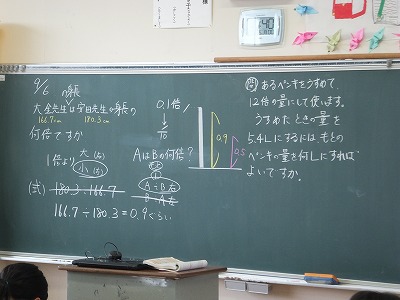 9/6
身長
大金先生は安田先生の身長の
166.7cm 180.3cm
何倍ですか
1倍より 大(る)
小(る)
(式) 180.3÷166.7
166.7÷180.3=0.9ぐらい
0.1倍
1/10
AはBの何倍?
A÷B
B÷A
0.9
0.5
問 あるペンキをうすめて、
12倍の量にして使います。
うすめたときの量を
5.4Lにするには、もとの
ペンキの量を何Lにすれば
よいですか。